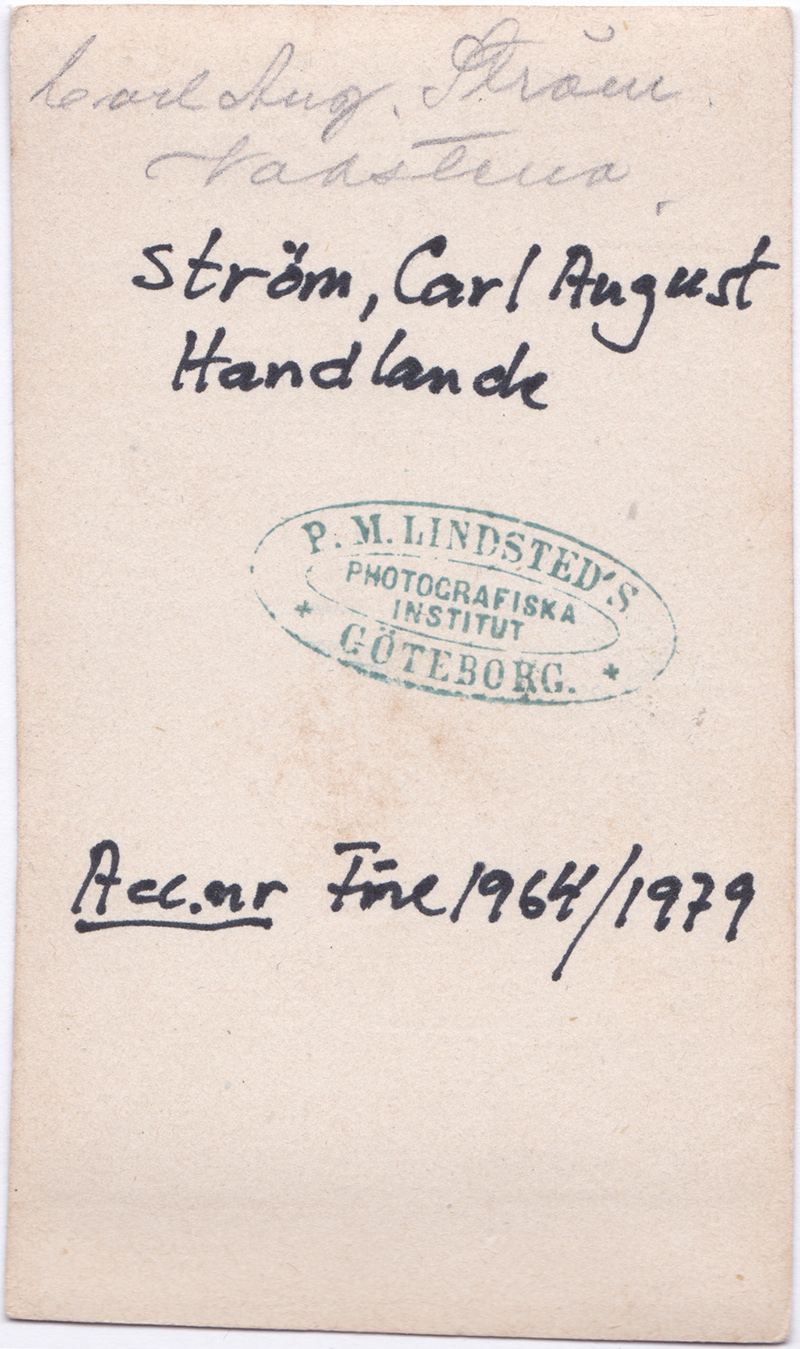 Carl Aug. Ström.
Vadstena.
Ström, Carl August
Handlande
P. M. LINDSTED'S
PHOTOGRAFISKA
INSTITUT
GÖTEBORG.
Acc.nr Före 1964/1979